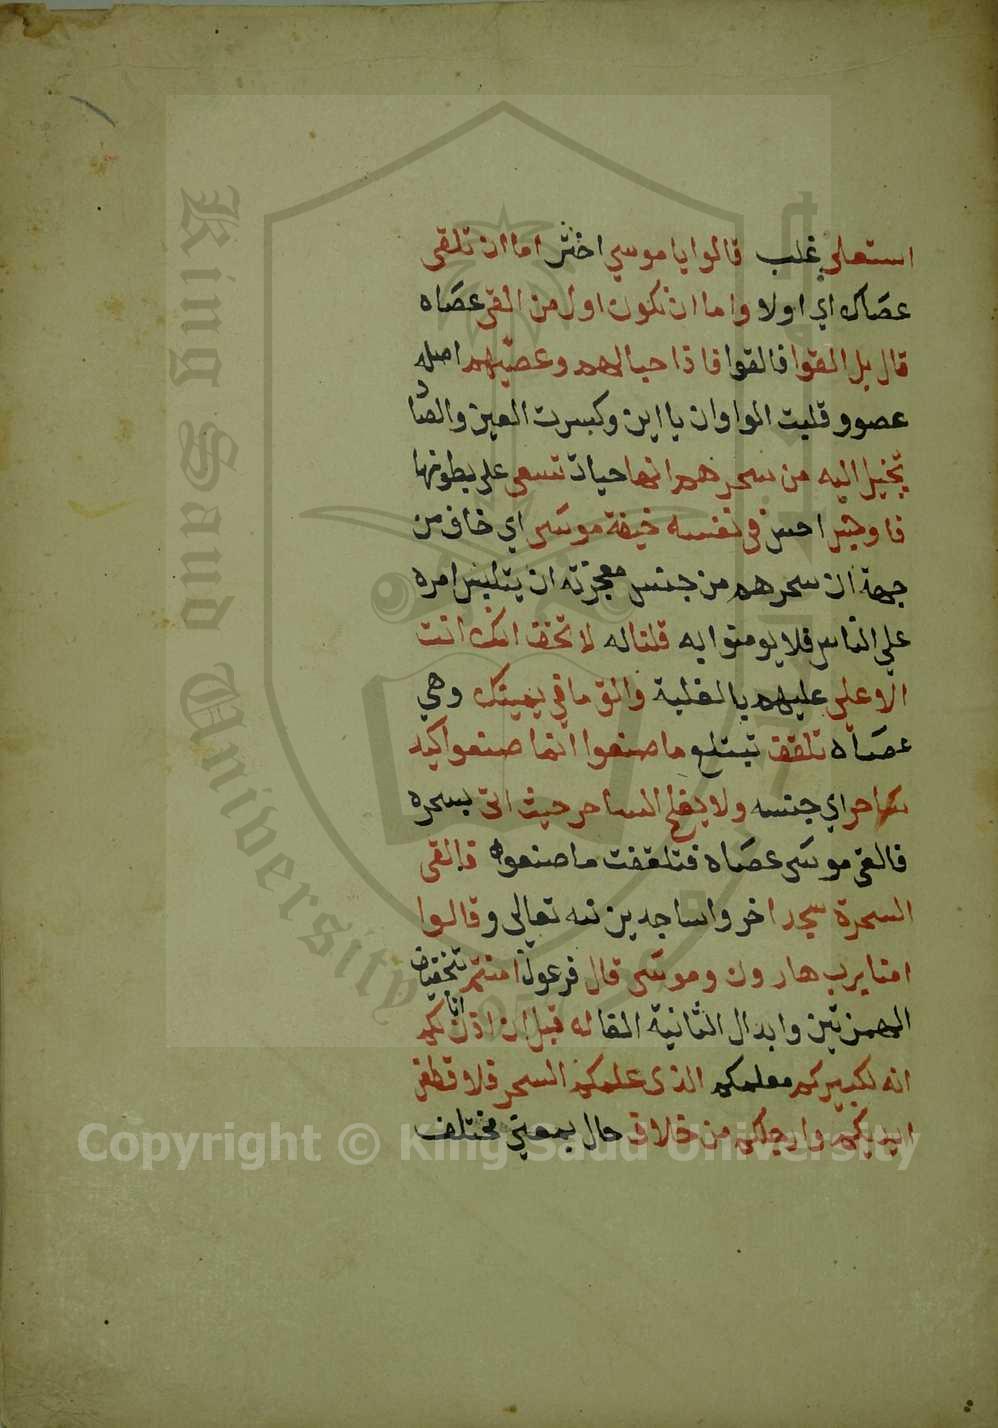 استعلى غلب قالوا يا موسي اختر اما ان تلقى
عصاك اي اولا واما ان نكون اول من القى عصاه
قال بل القوا فالقوا فاذا حبالهم وعصيهم اصله
عصوو قلبت الواوان يااين وكسرت العين والصاد
يخيل اليه من سحرهم انها حيات تسعى على بطونها
فاوجس احس في نفسه خيفة موسى اي خاف من
جهة ان سحرهم من جنس معجزته ان يتلبس امره
علي الناس فلا يومنوا به قلنا له لا تخف انك انت
الاعلى عليهم بالغلبة والق ما في يمينك وهي
عصاه تلقف تبتلع ما صنعوا انما صنعوا كيد
ساحر اي جنسه ولا يفلح الساحر حيث اتى بسحره
فالقى موسى عصاه فتلقفت ما صنعوه فالقى
السحرة سجدا خروا ساجدين لله تعالى وقالوا
امنا برب هارون وموسى قال فرعون امنتم بتحقيق
الهمزتين وابدال الثانية الفا له قبل ان اذن انا لكم
انه لكبيركم معلمكم الذى علمكم السحر فلاقطعن
ايديكم وارجلكم من خلاف حال بمعني مختلف
King Saud University
Copyright © King Saud University